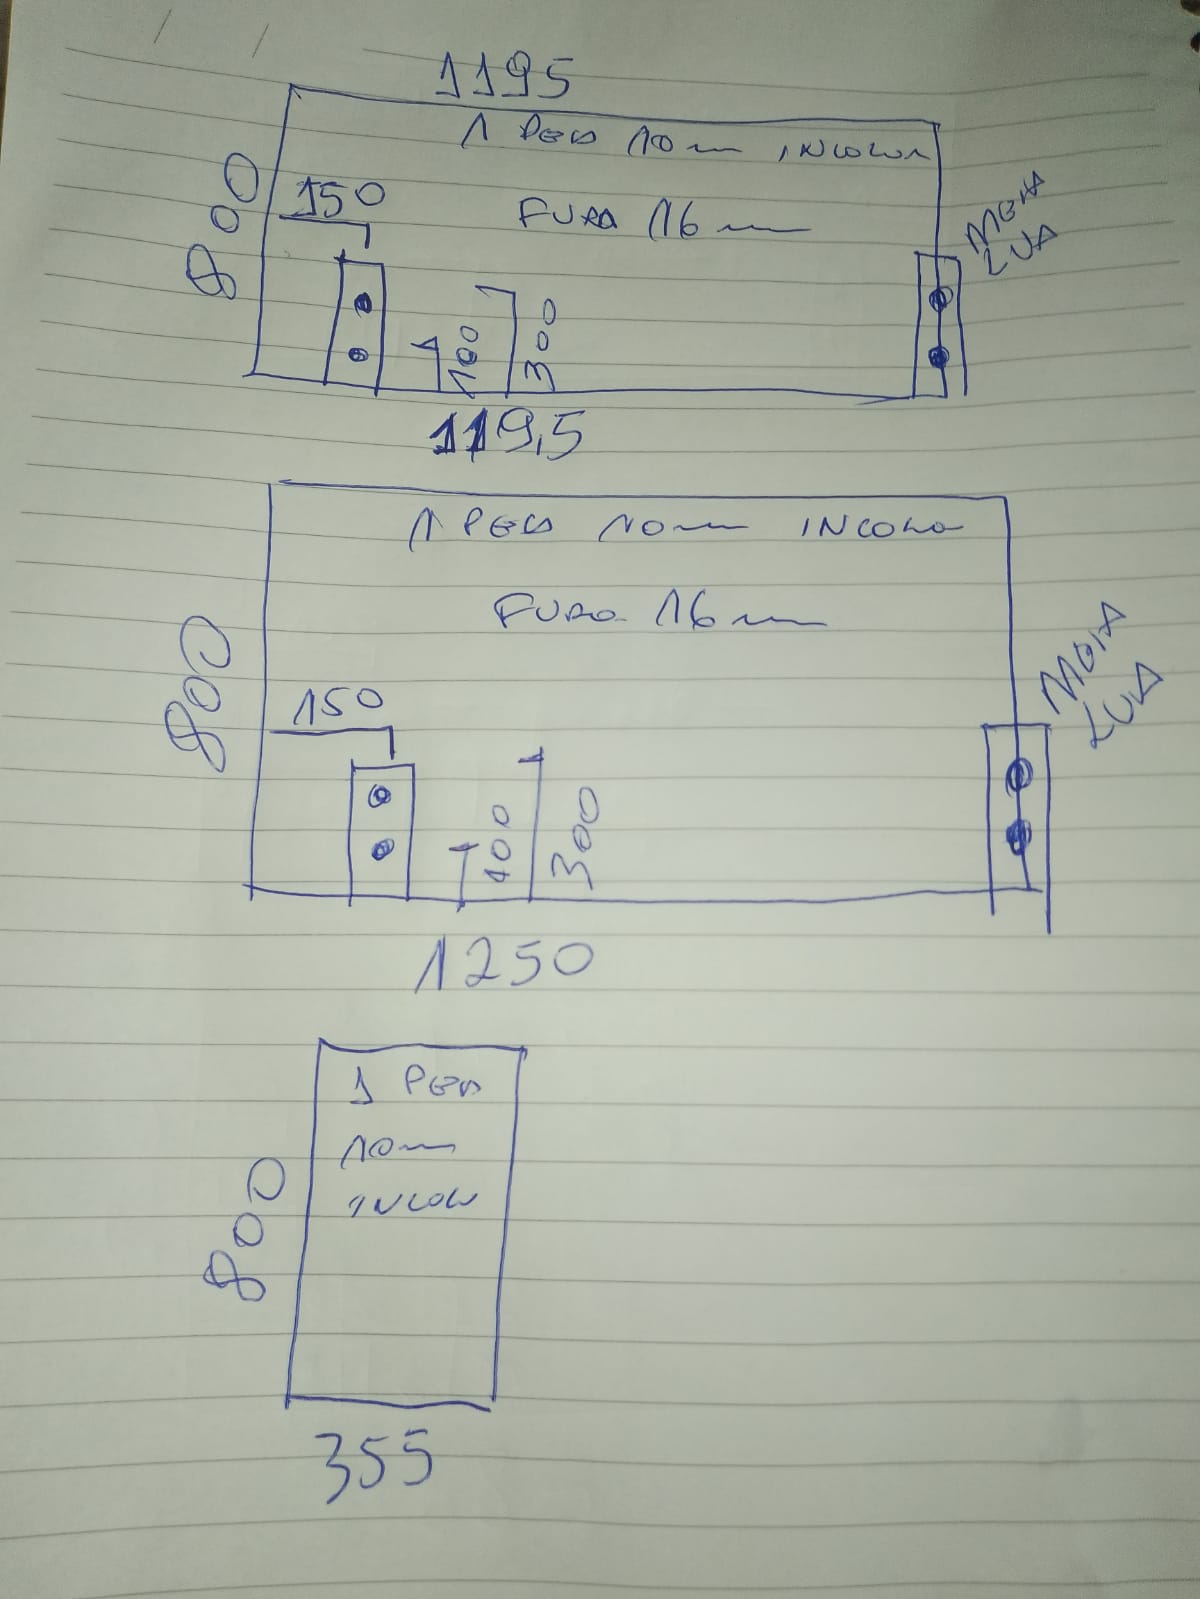 1195
1 PEÇA 10mm INCOLOR
800
150
FURO 16mm
MEIA
LUA
100
300
119,5
1 PEÇA 10mm INCOLOR
FURO 16mm
800
150
MEIA
LUA
100
300
1250
1 PEÇA
10mm
INCOLOR
800
355